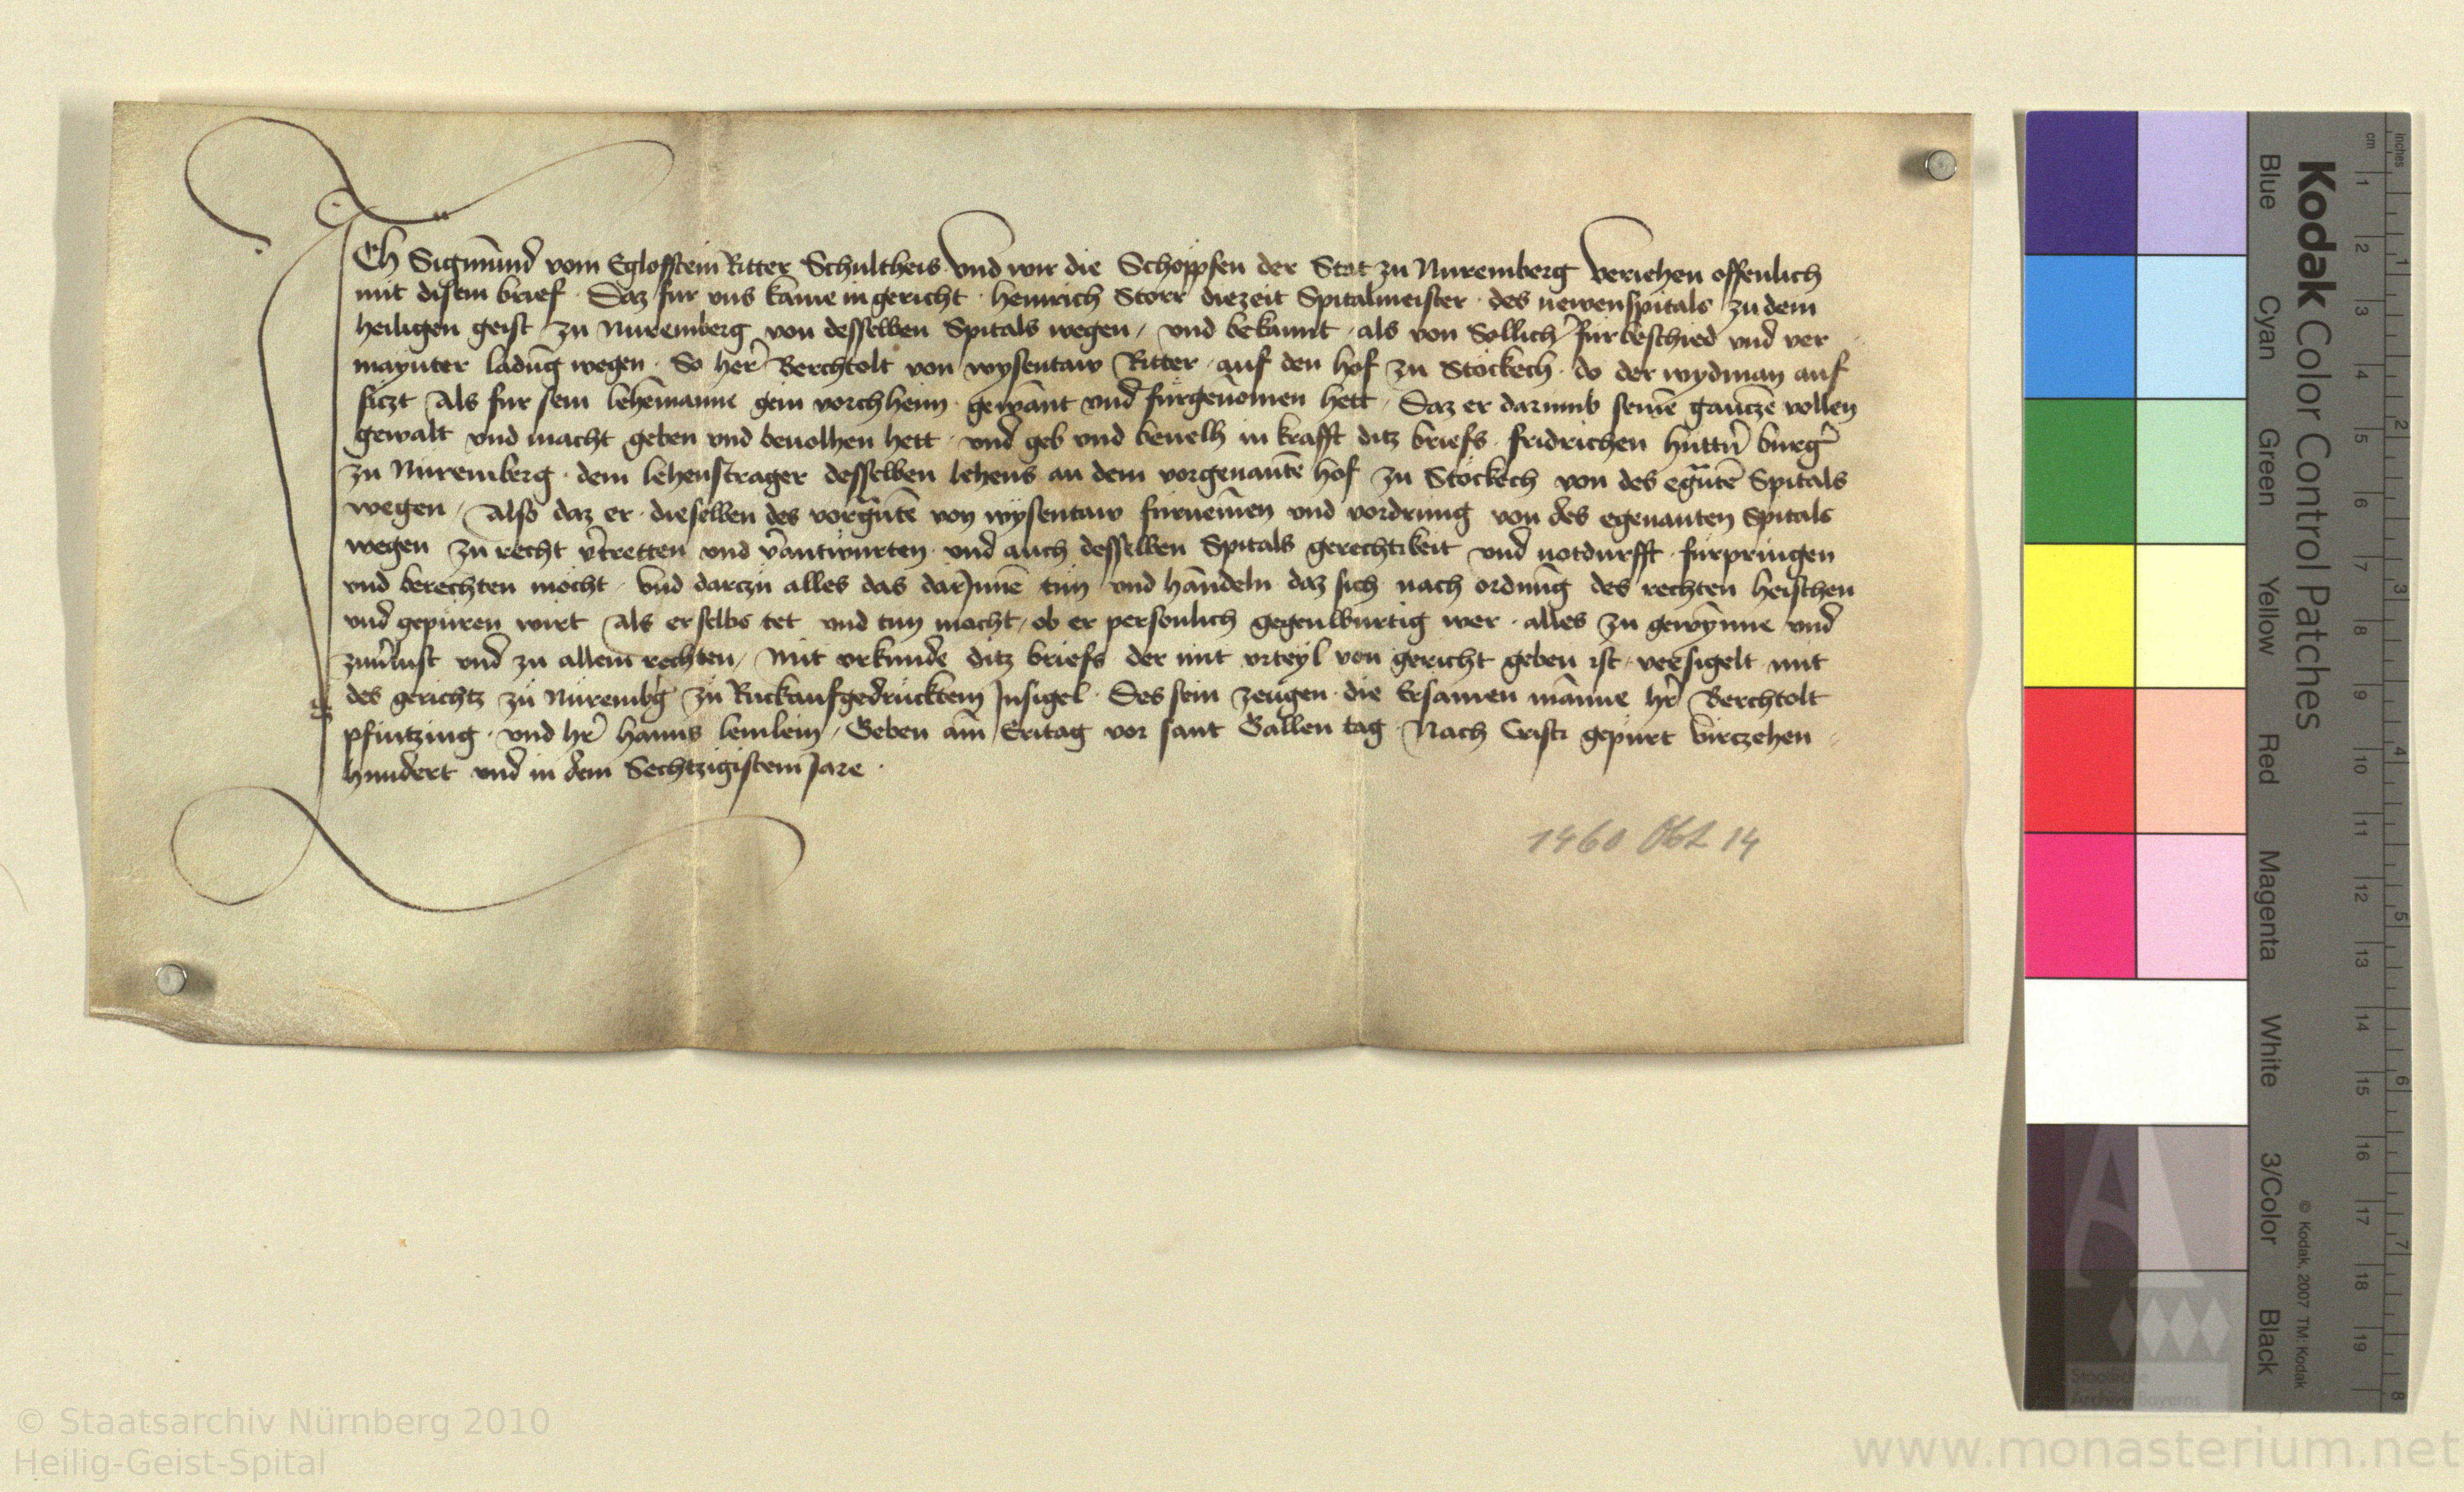 Ich Sigmūnd vom Egloffstein Ritter Schultheis vnd wir die Schopffen der Stat zu Nuremberg veriehen offenlich
mit disem brief · Daz fur vns kame in gericht · Heinrich Storr diezeit Spitalmeister · des newenspitals zu dem
heiligen geist zu Nuremberg von desselben Spitals wegen / vnd bekannt / als von Sollich furbeschied vnd ver
maynter ladūg wegen · So her Berchtolt von wysentaw Ritter · auf den hof zu Stockech · do der wydman auf
siczt Als fur sein lehēmanne gein vorchheim · gewant vnd furgenomen hett / Daz er darumb seinē gauczē vollen
gewalt vnd macht geben vnd beuolhen hett · vnd geb vnd beuelh in krafft ditz briefs · fridrichen huttn̄ burḡ
zu Nuremberg · dem lehenstrager desselben lehens an dem vorgenantē hof zu Stockech von des egn̄tē Spitals
wegen / Also daz er · dieselben des vorgn̄tē von wysentaw furnemen vnd vordrung von des egenanten Spitals
wegen zu recht v̄tretten vnd v̄antwurten · vnd auch desselben Spitals gerechtikeit vnd notdurfft · furpringen
vnd berechten mocht · Vnd darczu alles das darJnnē tun vnd handeln daz sich nach ordnūg des rechten heischen
vnd gepuren wirt Als er selbs tet vnd tun mocht / ob er personlich gegenwurtig wer · alles zu gewynne vnd
zuu̅lust vnd zu allem rechten / mit vrkunde ditz briefs der mit vrteyl von gericht geben ist / versigelt mit
des gerichtz zu Nurembḡ zu Ruckaufgedrucktem Jnsigel · Des sein zeugen · die Ersamen manne hr̄ Berchtolt
pfintzing · vnd hr̄ hanns lemlein / Geben am Eritag vor sant Gallen tag · Nach Cristi gepurt virczehen
hundert vnd in dem Sechtzigistem Jare ·
1460 Okt 14
Kodak Color Control Patches
Blue Cyan Green Yellow Red Magenta White 3/Color Black
© Kodak, 2007 TM: Kodak
inches 1 2 3 4 5 6 7 8
cm 1 2 3 4 5 6 7 8 9 10 11 12 13 14 15 16 17 18 19
Staatliche
Archive Bayerns
© Staatsarchiv Nürnberg 2010
Heilig-Geist-Spital
www.monasterium.net